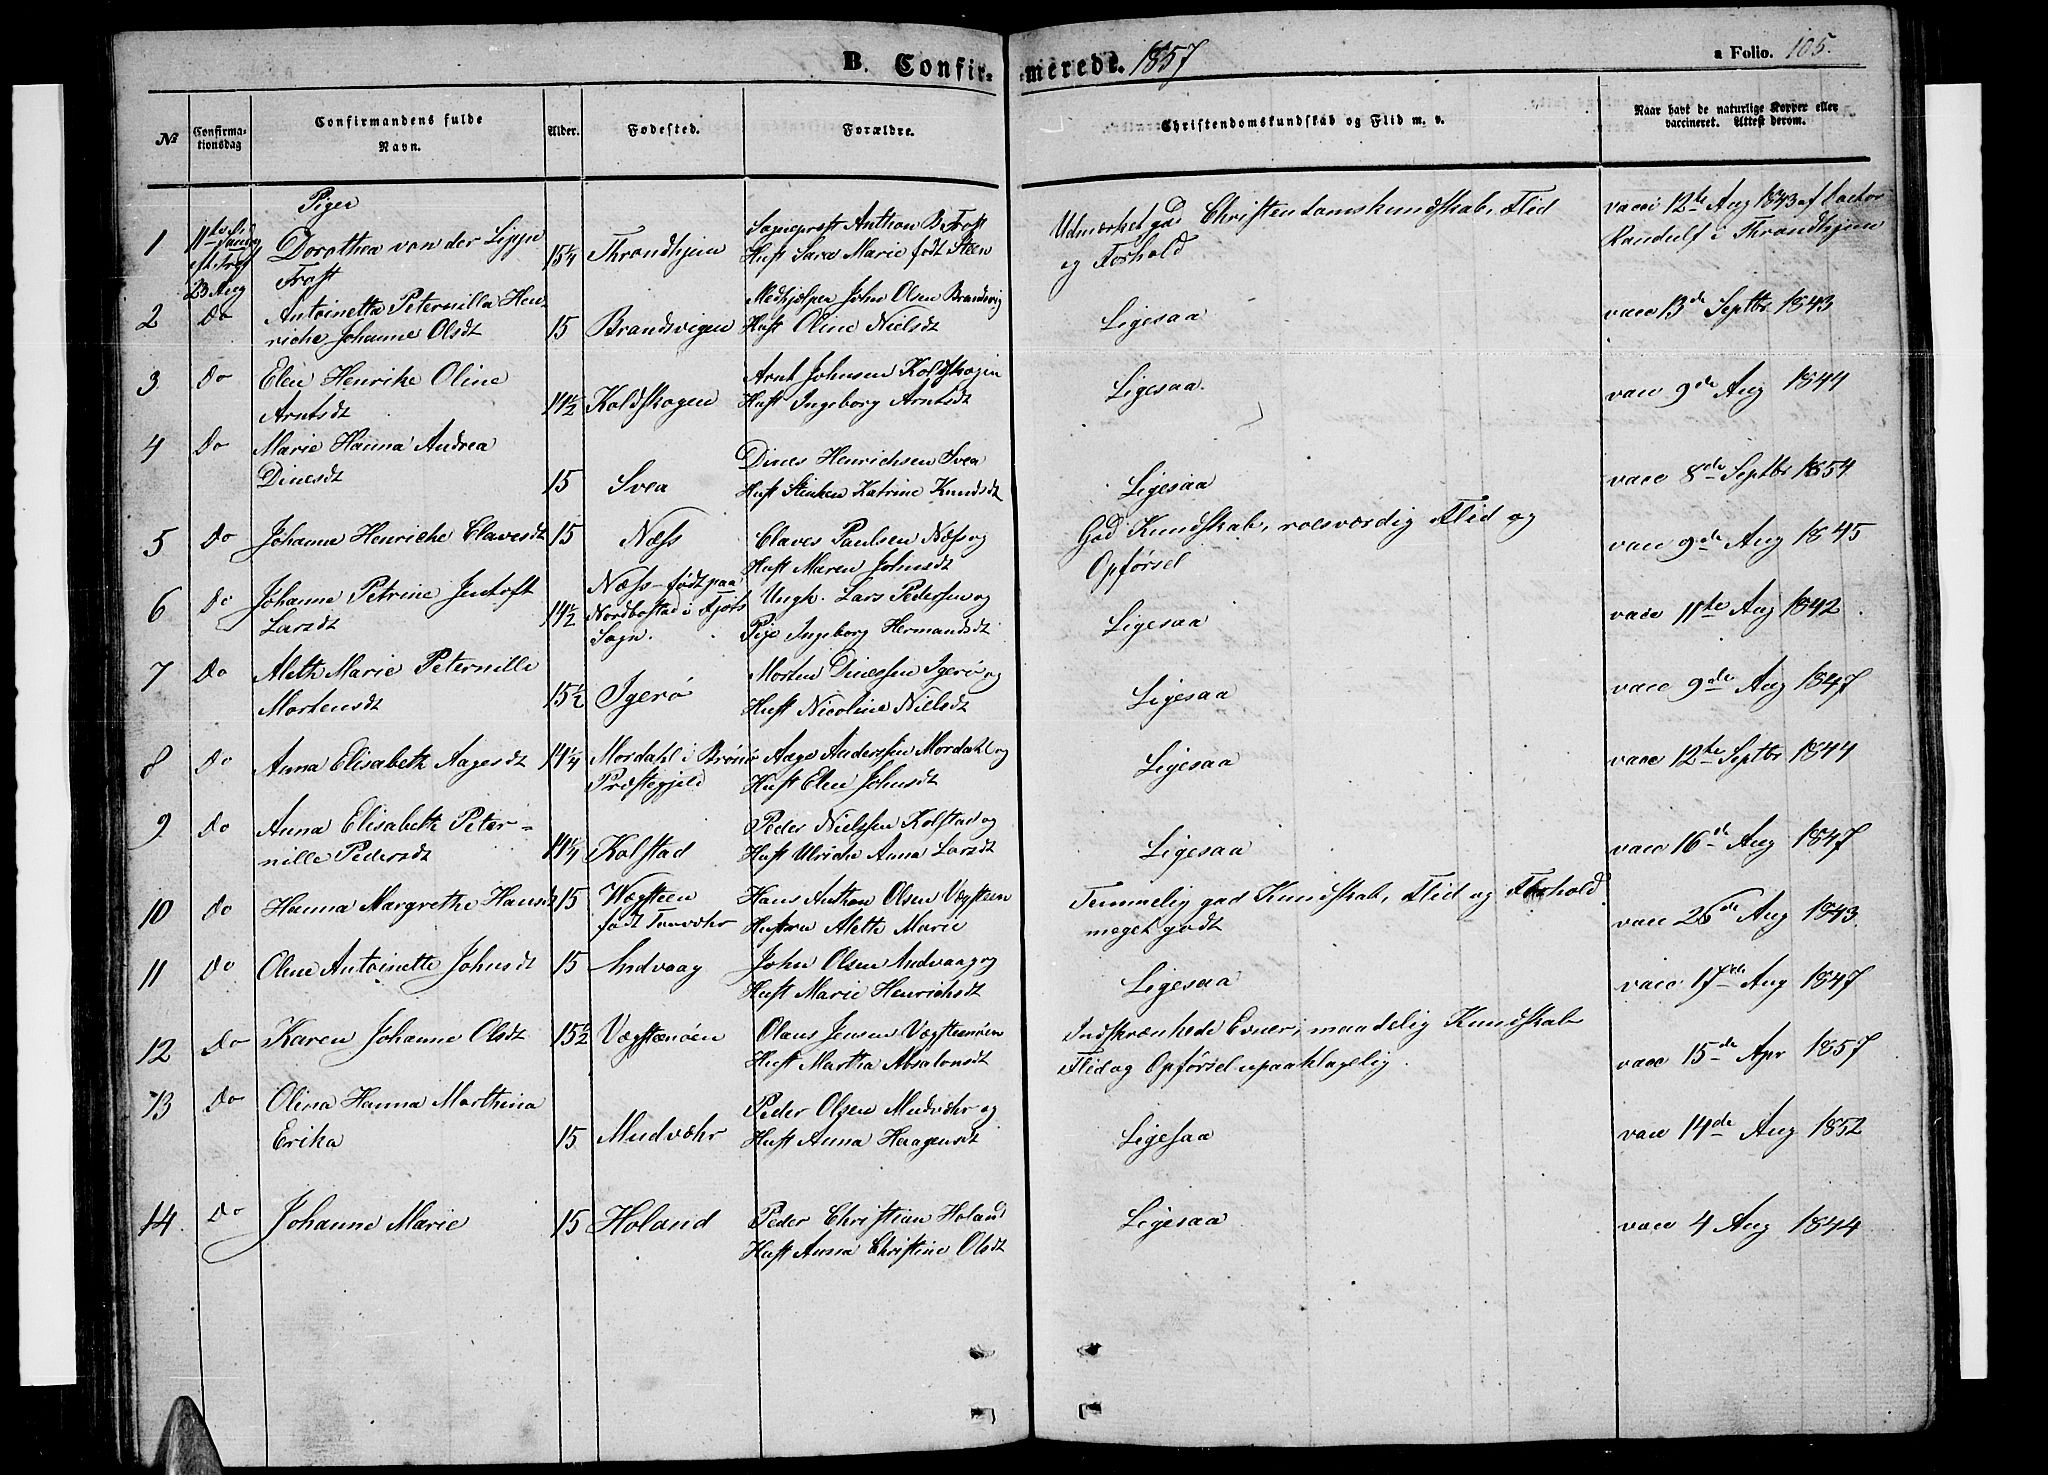 B. Confir- merede. 1857
a Folio. 105.
No
Confirma-
tionsdag
Confirmandens fulde
Navn.
Alder.
Fødested.
Forældre.
Christendomskundskab og Flid m. v.
Naar havt de naturlige Kopper eller
vaccineret. Attest derom.
Piger
1
11te S.
eft. Tref
23 Aug
Dorothea von der Lippe
Frost
15 1/4
Throndhjem
Sogneprest Anthon B Frost
Hust Sara Marie født Steen
Udmærket god Christendomskundskab, Flid
og Forhold
vacci 12te Aug 1843 af Doctor
Randulf i Throndhjem
2
Do
Antoinetta Peternilla Hen
riche Johanne Olsdt
15
Brandsvigen
Medhjelper John Olsen Brandsvig
Hust Oline Nielsdt
Ligesaa
vacc 13de Septbr 1843
3
Do
Elen Henrike Oline
Arntsdt
14 1/2
Koldskogen
Arnt Johnsen Koldskogen
Hust Ingeborg Arntsdt
Ligesaa.
vacc 9de Aug 1844
4
Do
Marie Hanna Andrea
Dinesdt
15
Svea
Dines Henrichsen Svea
Hust Stinken Katrine Knudsdt
Ligesaa
vacc 8de Septbr 1854
5
Do
Johanne Henriche Clavesdt
15
Næss
Claves Paulsen Næss og
Hust Maren Johnsdt
God Kundskab, roesværdig Flid og
Opførsel
vacc 9de Aug 1845
6
Do
Johanne Petrine Jentoft
Larsdt
14 1/2
Næss - født paa
Nordbostad i Tjøtø
Sogn.
Ungk. Lars Pedersen og
Pige Ingeborg Hermandsdt
Ligesaa
vacc 11te Aug 1842
7
Do
Aleth Marie Peternille
Mortensdt
15 1/2
Igerø
Morten Dinessen Igerø og
Hust Nicoline Nielsdt
Ligesaa
vacc 9de Aug 1847
8
Do
Anna Elisabeth Aagesdt
14 1/4
Mordahl i Brønø
Præstegjeld
Aage Anderssen Mordahl og
Hust Elen Johnsdt
Ligesaa
vacc 12te Septbr 1844
9
Do
Anna Elisabeth Peter-
nille Pedersdt
14 1/4
Kolstad
Peder Nielssen Kolstad og
Hust Ulriche Anna Larsdt
Ligesaa
vacc 16de Aug 1847
10
Do
Hanna Margrethe Hansdt
15
Vægsteen
født
Hans Anthon Olsen Vægsteen
Hustru Aleth Marie
Temmelig god Kundskab, Flid og Forhold
meget godt
vacc 26de Aug 1843.
11
Do
Olene Antoinette Johnsdt
15
Indvaag
John Olsen Indvaag og
Hust Marie Henrichsdt
Ligesaa
vacc 17de Aug 1847
12
Do
Karen Johanne Olsdt
15 1/2
Vægstenøen
Olaus Jensen Vægsteenøen
Hust Martha Absalonsdt
Indskrænkede Evner, maadelig Kundskab
Flid og Opførsel upaaklagelig.
vacc 15de Apr 1857
13
Do
Olina Hanna Marthina
Erika
15
Mudvæhr
Peder Olsen Mudvæhr og
Hust Anna Haagensdt
Ligesaa
vacc 14de Aug 1852
14
Do
Johanne Marie
15
Holand
Peder Christian Holand
Hust Anna Christine Olsdt
Ligesaa
vacc 4 Aug 1844